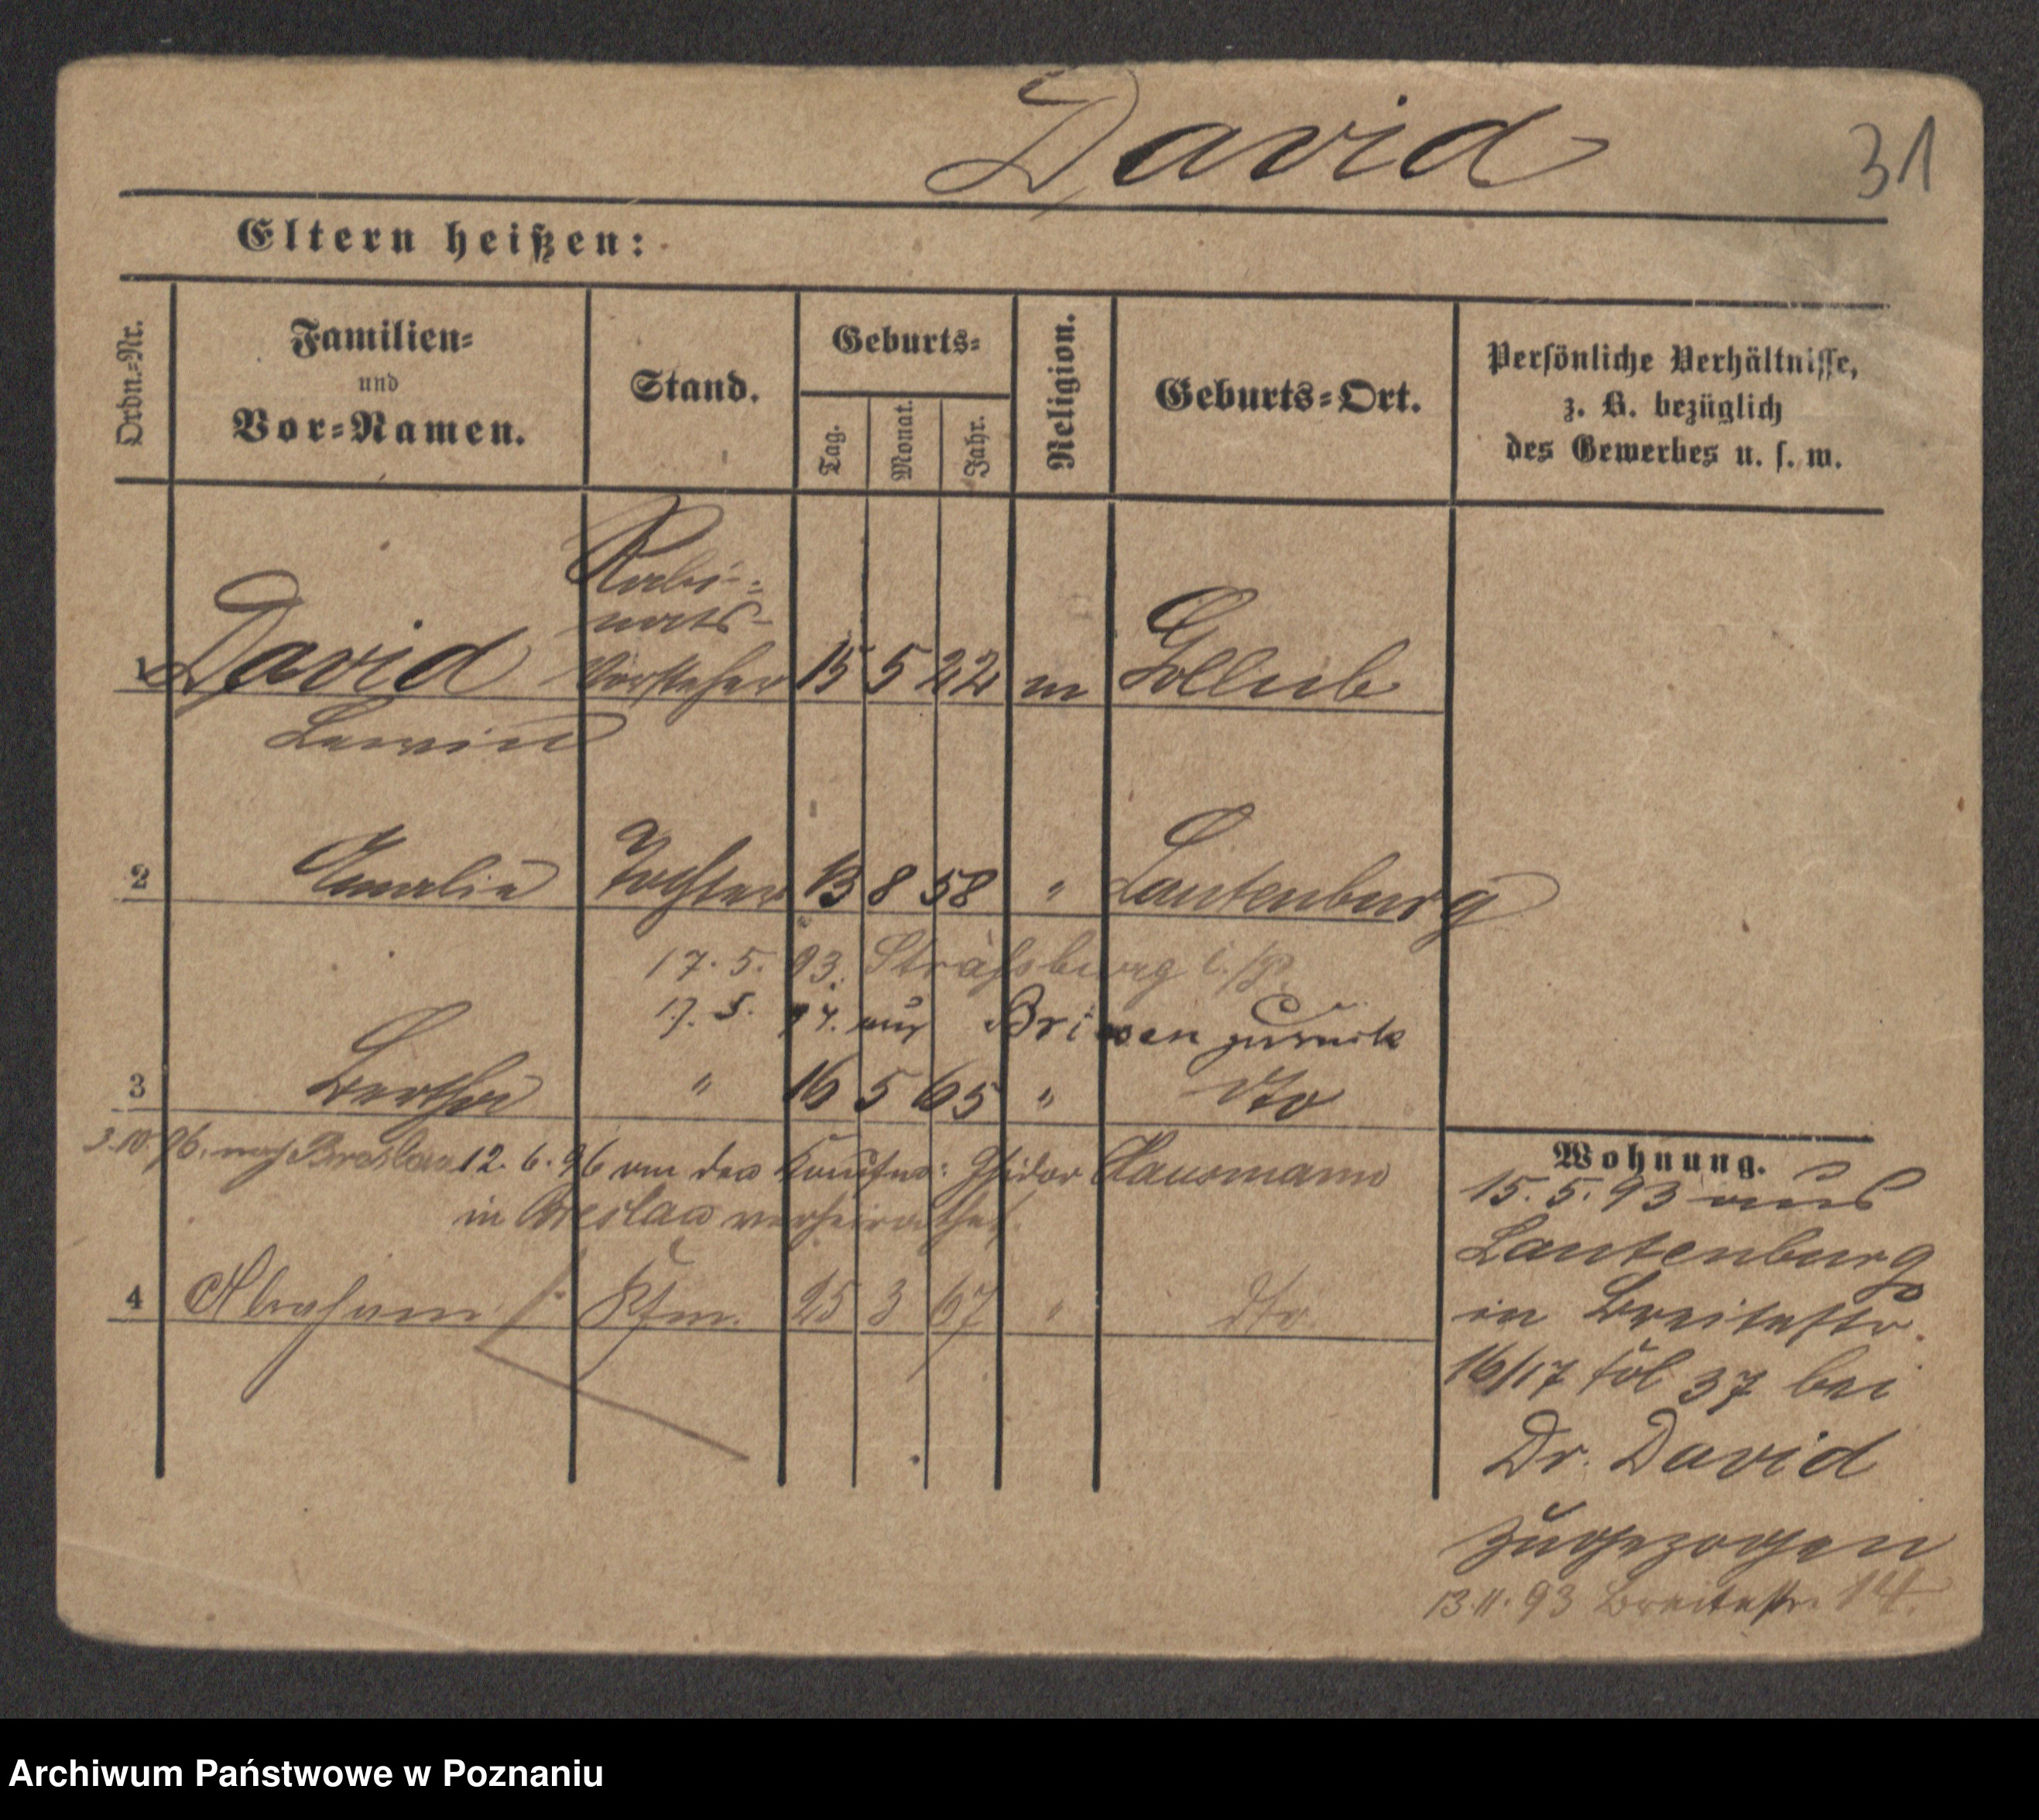 David
31
Eltern heißen:
Ordn.-Nr.
Familien-
und
Vor-Namen.
Stand.
Geburts-
Tag.
Monat.
Jahr.
Religion.
Geburts-Ort.
Persönliche Verhältnisse,
z. B. bezüglich
des Gewerbes u. s. w.
Rabi-
nats-
1 David Vorsteher 15 5 22 m Gollub
Lewin
2 Amalie Tochter 13 8 58 " Lautenburg
17. 5. 93. Straßburg
17. 5. 94. aus Briesen zurück
3 Bertha " 16 5 65 " dto
3.10.96. nach Breslau 12. 6. 96 an den Kaufm: Isidor Hausmann
in Breslau verheirathet.
4 Abraham Kfm. 25 3 67 " dto.
Wohnung.
15. 5. 93 aus
Lautenburg
in Breitestr.
16/17 fol 37 bei
Dr. David
zugezogen
13.11.93 Breitestr. 14.
Archiwum Państwowe w Poznaniu